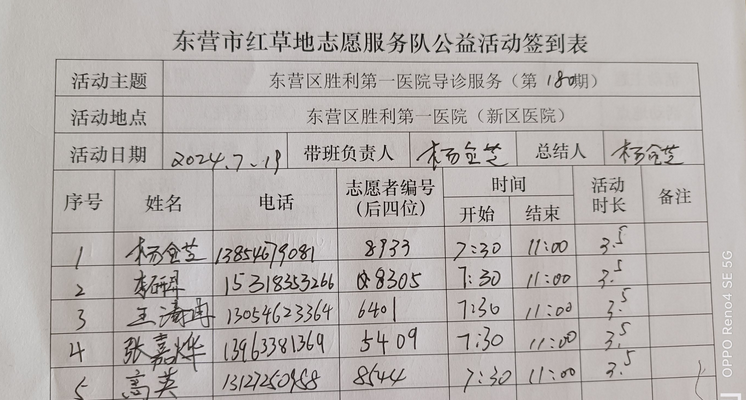 东营市红草地志愿服务队公益活动签到表
活动主题 东营区胜利第一医院导诊服务（第180期）
活动地点 东营区胜利第一医院（新区医院）
活动日期 2024.7.19 带班负责人 杨金芝 总结人 杨金芝
序号 姓名 电话 志愿者编号（后四位） 时间 开始 结束 活动时长 备注
1 杨金芝 13854679081 8933 7:30 11:00 3.5
2 15318353266 8305 7:30 11:00 3.5
3 王海冉 13054623364 6401 7:30 11:00 3.5
4 张嘉烨 13963381369 5409 7:30 11:00 3.5
5 高英 13127250958 8544 7:30 11:00 3.5
OPPO Reno4 SE 5G